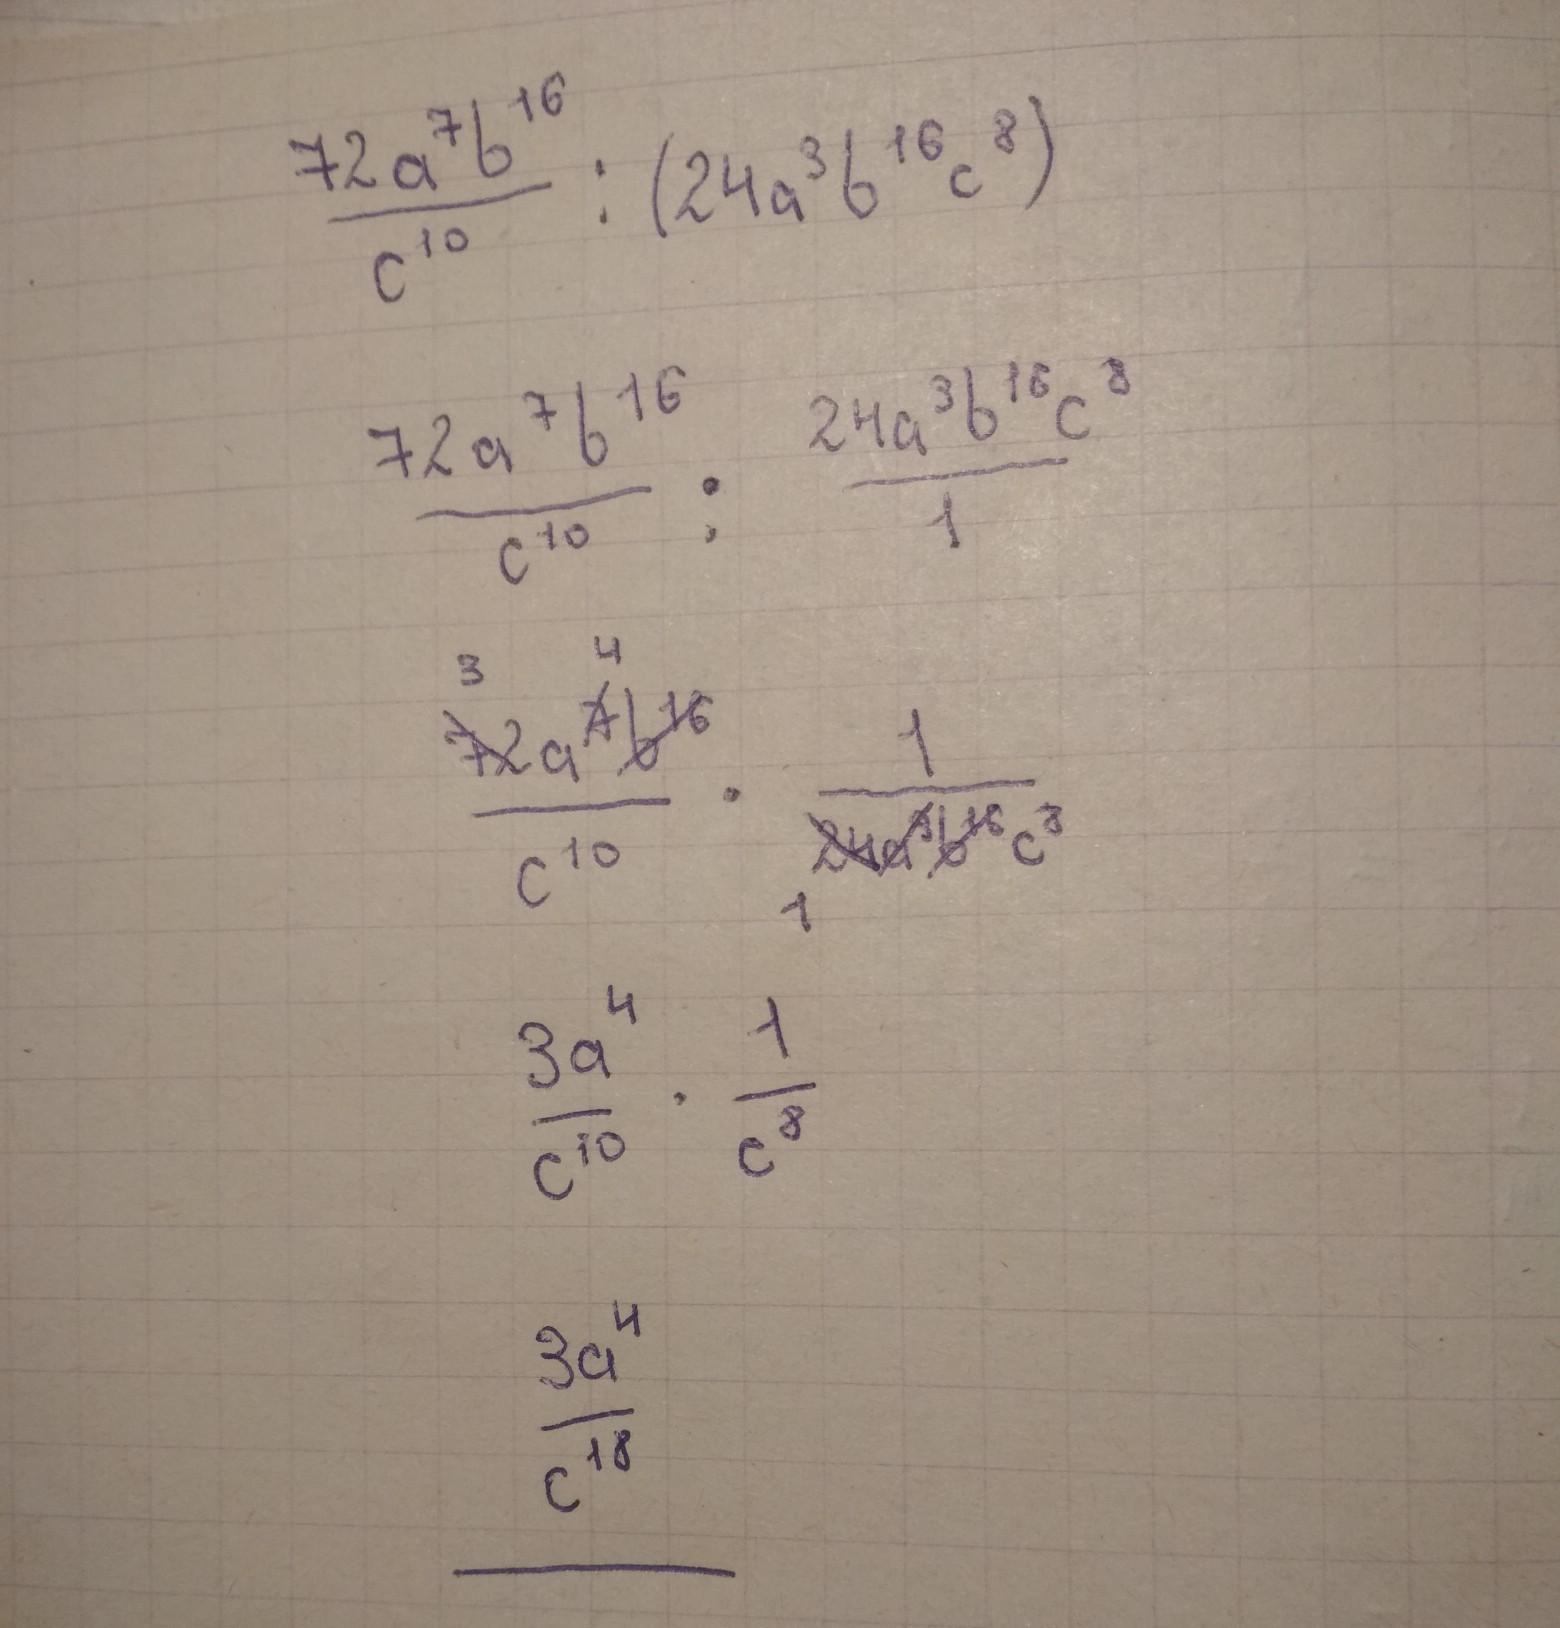 72a⁷b¹⁶/c¹⁰ : (24a³b¹⁶c⁸)
72a⁷b¹⁶/c¹⁰ : 24a³b¹⁶c⁸/1
3 4
72a⁷b¹⁶/c¹⁰ · 1/24a³b¹⁶c⁸
1
3a⁴/c¹⁰ · 1/c⁸
3a⁴/c¹⁸